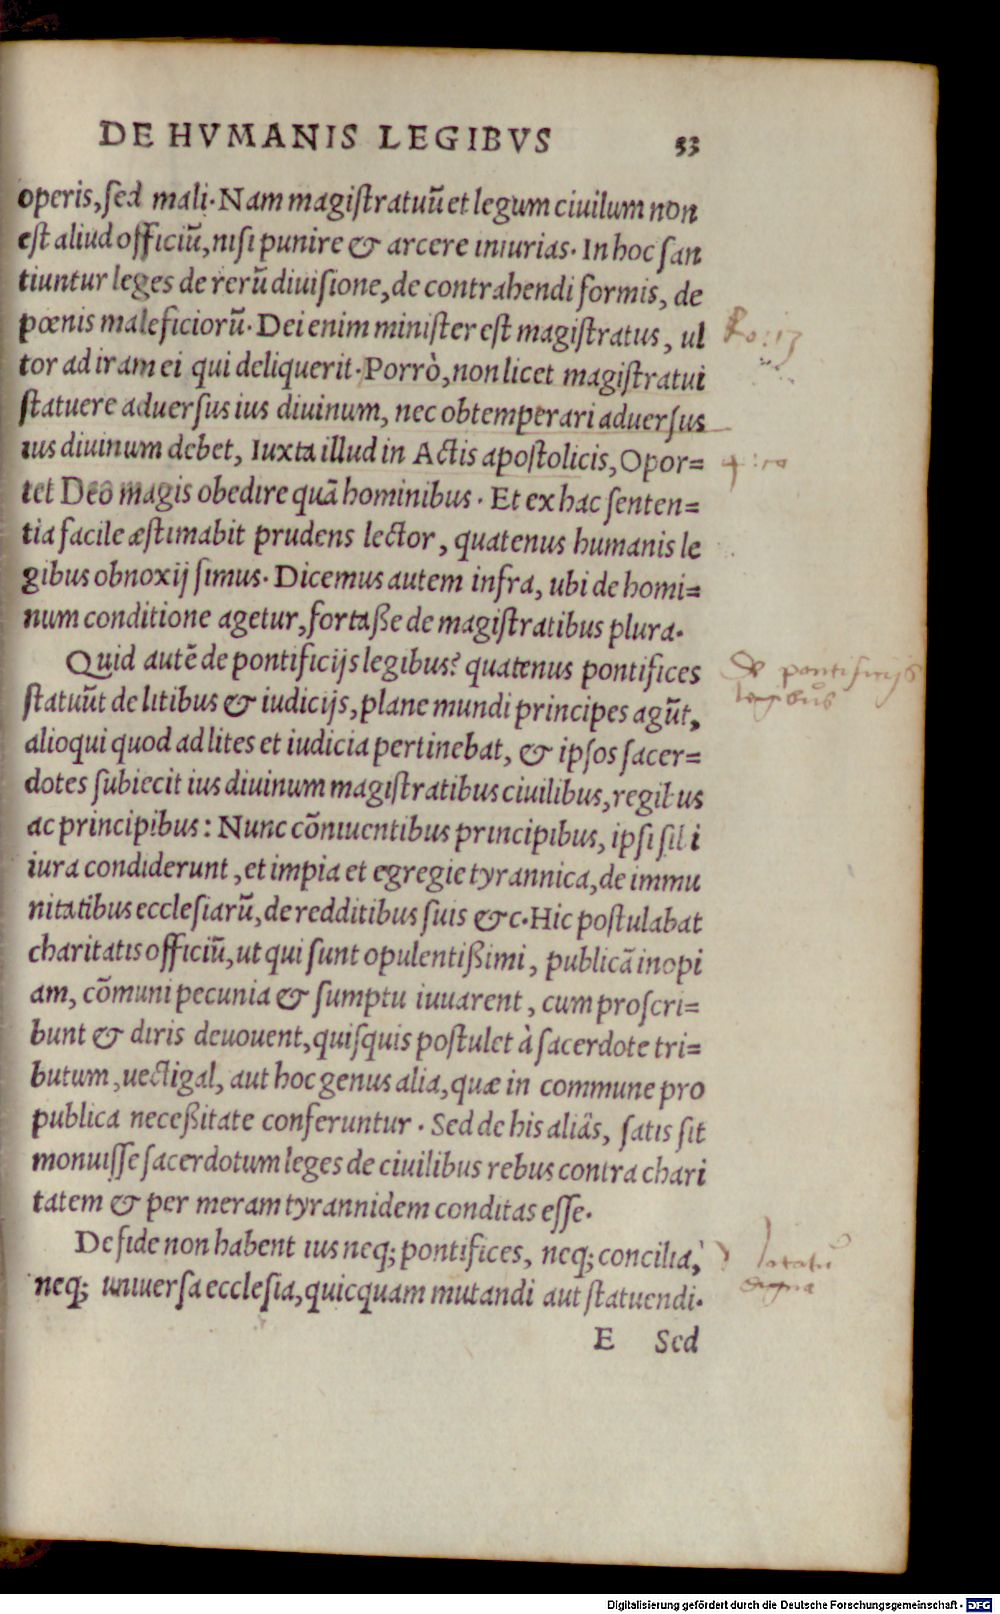 DE HVMANIS LEGIBVS 53
operis, sed mali. Nam magistratuũ et legum ciuilum non
est aliud officiũ, nisi punire & arcere iniurias. In hoc san
tiuntur leges de rerũ diuisione, de contrahendi formis, de
pœnis maleficiorũ. Dei enim minister est magistratus, ul
tor ad iram ei qui deliquerit. Porrò, non licet magistratui
statuere aduersus ius diuinum, nec obtemperari aduersus
ius diuinum debet, Iuxta illud in Actis apostolicis, Opor=
tet Deo magis obedire quã hominibus. Et ex hac senten=
tia facile æstimabit prudens lector, quatenus humanis le
gibus obnoxij simus. Dicemus autem infra, ubi de homi=
num conditione agetur, fortaße de magistratibus plura.
Quid autẽ de pontificijs legibus? quatenus pontifices
statuũt de litibus & iudicijs, plane mundi principes agũt,
alioqui quod ad lites et iudicia pertinebat, & ipsos sacer=
dotes subiecit ius diuinum magistratibus ciuilibus, regibus
ac principibus: Nunc cõniuentibus principibus, ipsi sibi
iura condiderunt, et impia et egregie tyrannica, de immu
nitatibus ecclesiarũ, de redditibus suis &c. Hic postulabat
charitatis officiũ, ut qui sunt opulentißimi, publicã inopi
am, cõmuni pecunia & sumptu iuuarent, cum proscri=
bunt & diris deuouent, quisquis postulet à sacerdote tri=
butum, uectigal, aut hoc genus alia, quæ in commune pro
publica neceßitate conferuntur. Sed de his aliâs, satis sit
monuisse sacerdotum leges de ciuilibus rebus contra chari
tatem & per meram tyrannidem conditas esse.
De fide non habent ius neq; pontifices, neq; concilia,
neq; uniuersa ecclesia, quicquam mutandi aut statuendi.
E Sed
Ro: 13
De pontificijs
legibus
digna
Digitalisierung gefördert durch die Deutsche Forschungsgemeinschaft - DFG